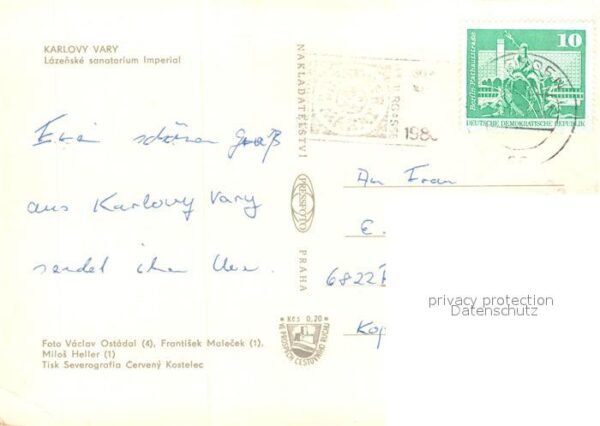 KARLOVY VARY
Lázeňské sanatorium Imperial
NAKLADATELSTVÍ
PRESSFOTO
PRAHA
10
Berlin, Rathausstraße
DEUTSCHE DEMOKRATISCHE REPUBLIK
198
schöner Gruß
aus Karlovy Vary
sendet
An Frau
E.
6822
Kop
Kčs 0,20
VE PROSPĚCH CESTOVNÍHO RUCHU
privacy protection
Datenschutz
Foto Václav Ostádal (4), František Maleček (1),
Miloš Heller (1)
Tisk Severografia Červený Kostelec